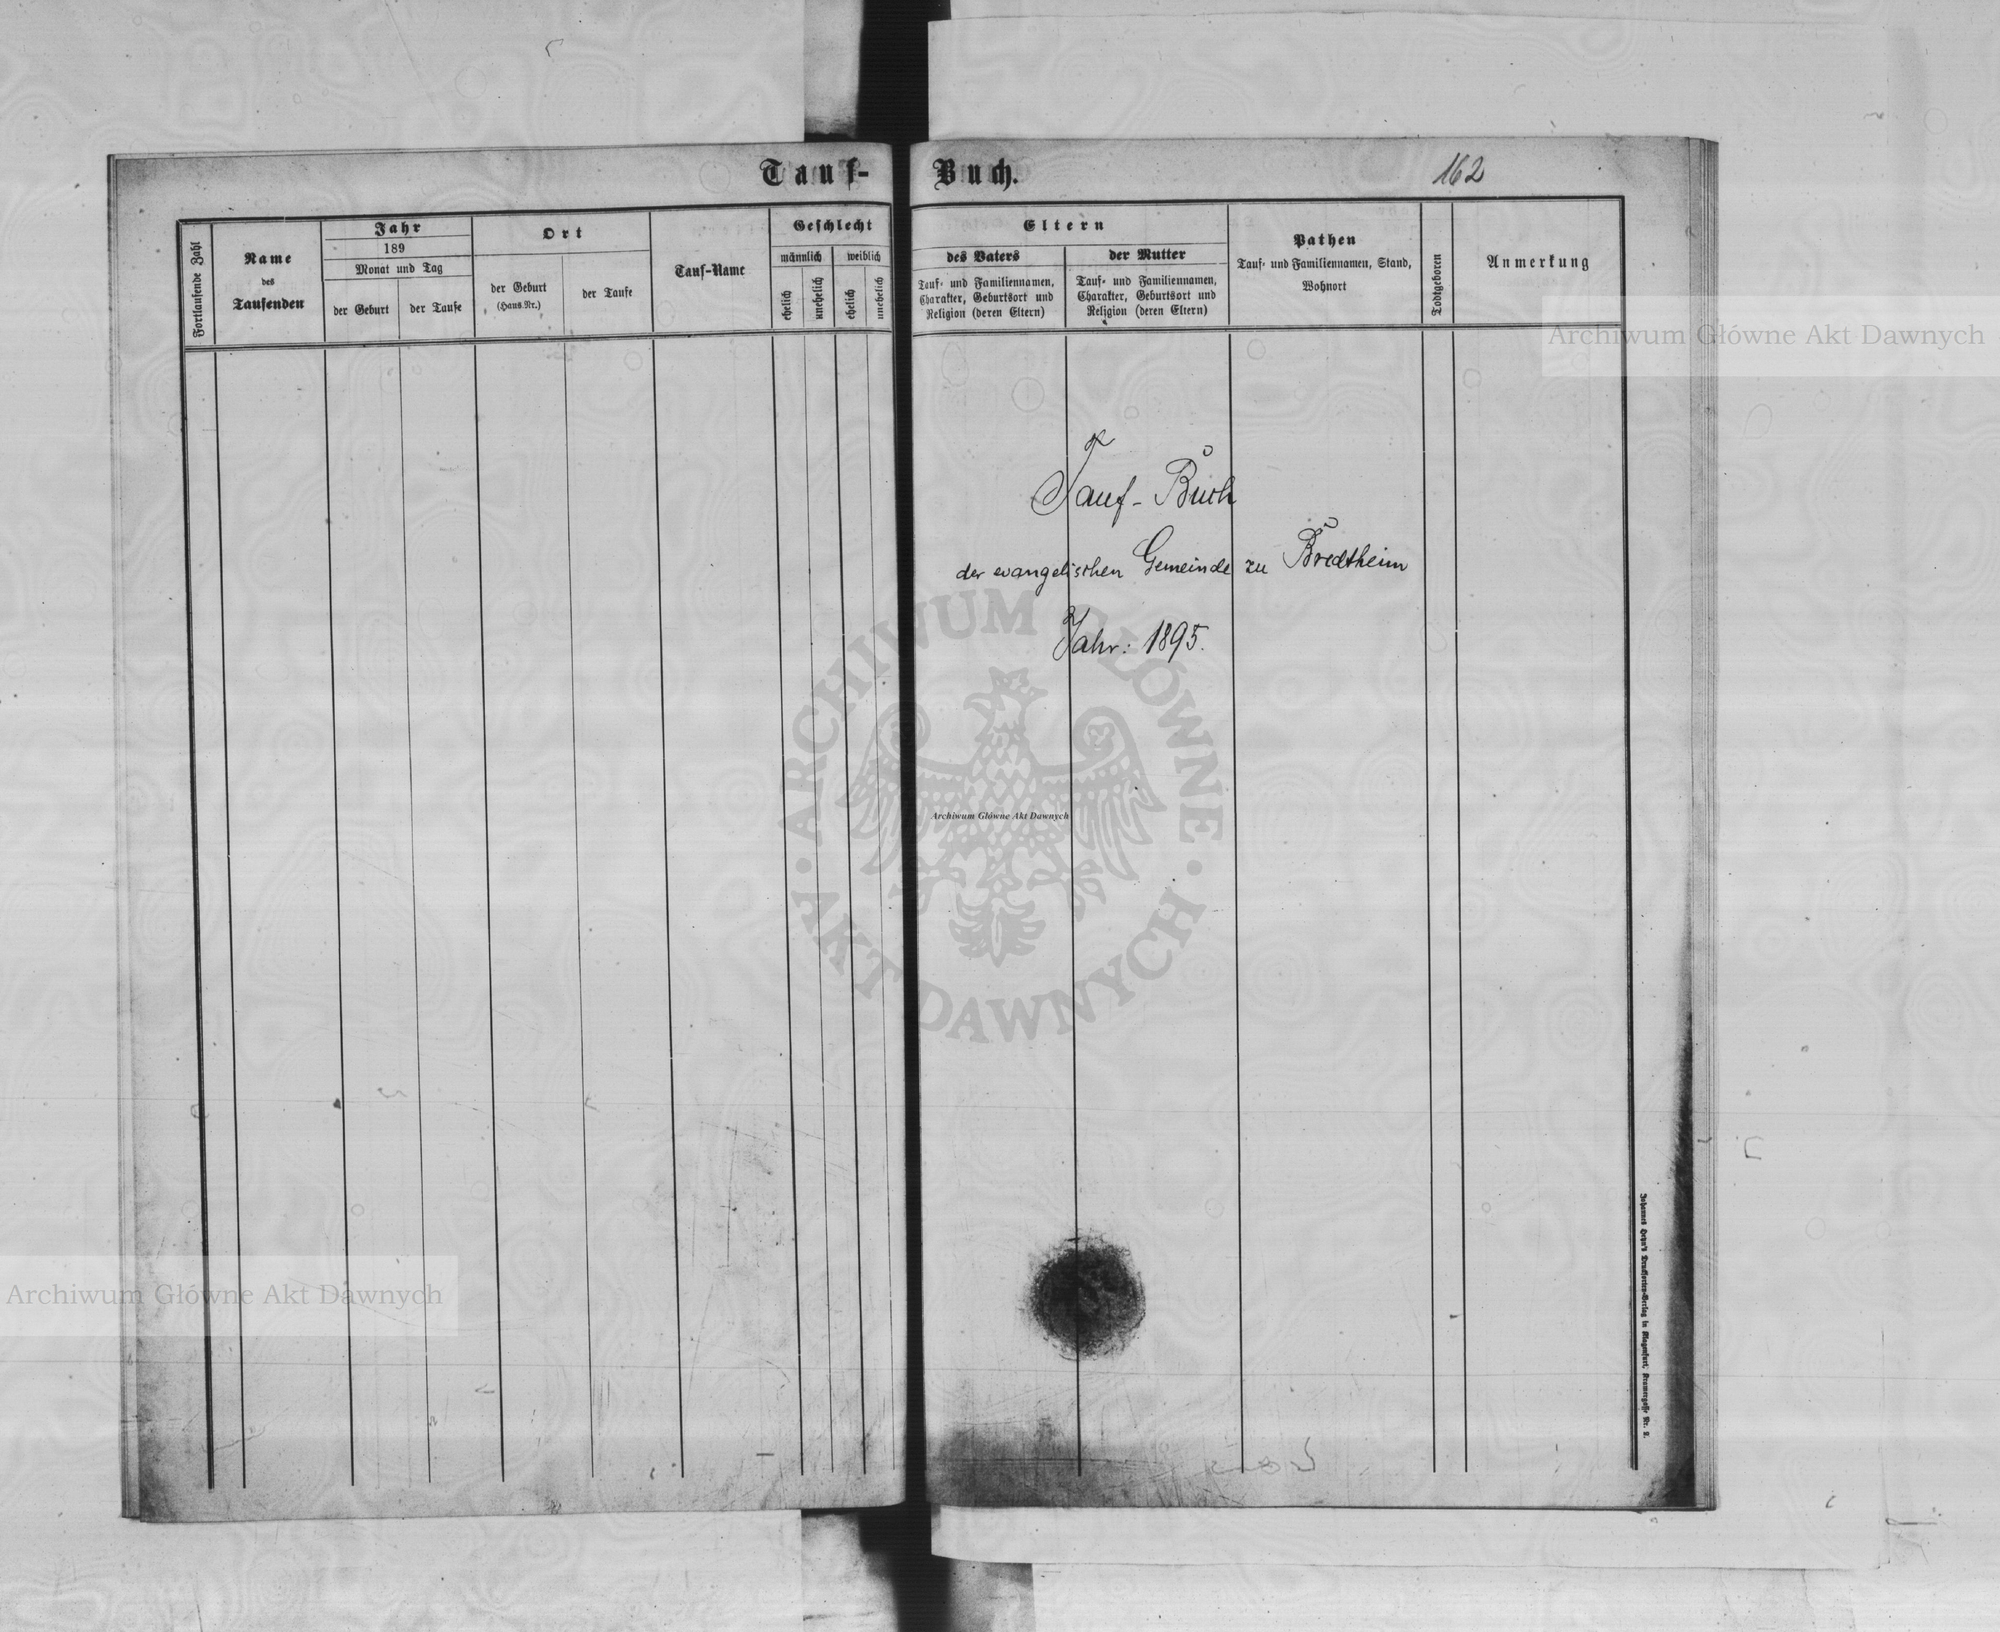 Tauf-Buch.
162
Fortlaufende Zahl
Name
des
Taufenden
Jahr
189
Monat und Tag
der Geburt
der Taufe
Ort
der Geburt
(Haus.Nr.)
der Taufe
Tauf-Name
Geschlecht
männlich
weiblich
ehelich
unehelich
ehelich
unehelich
Eltern
des Vaters
Tauf- und Familiennamen,
Charakter, Geburtsort und
Religion (deren Eltern)
der Mutter
Tauf- und Familiennamen,
Charakter, Geburtsort und
Religion (deren Eltern)
Pathen
Tauf- und Familiennamen, Stand,
Wohnort
Todtgeboren
Anmerkung
Archiwum Główne Akt Dawnych
Tauf-Buch
der evangelischen Gemeinde zu Bredtheim
Jahr: 1895.
ARCHIWUM GŁÓWNE
AKT DAWNYCH
Archiwum Główne Akt Dawnych
Archiwum Główne Akt Dawnych
Johannes Heyn's Drucksorten-Verlag in Klagenfurt, Kramergasse Nr. 2.